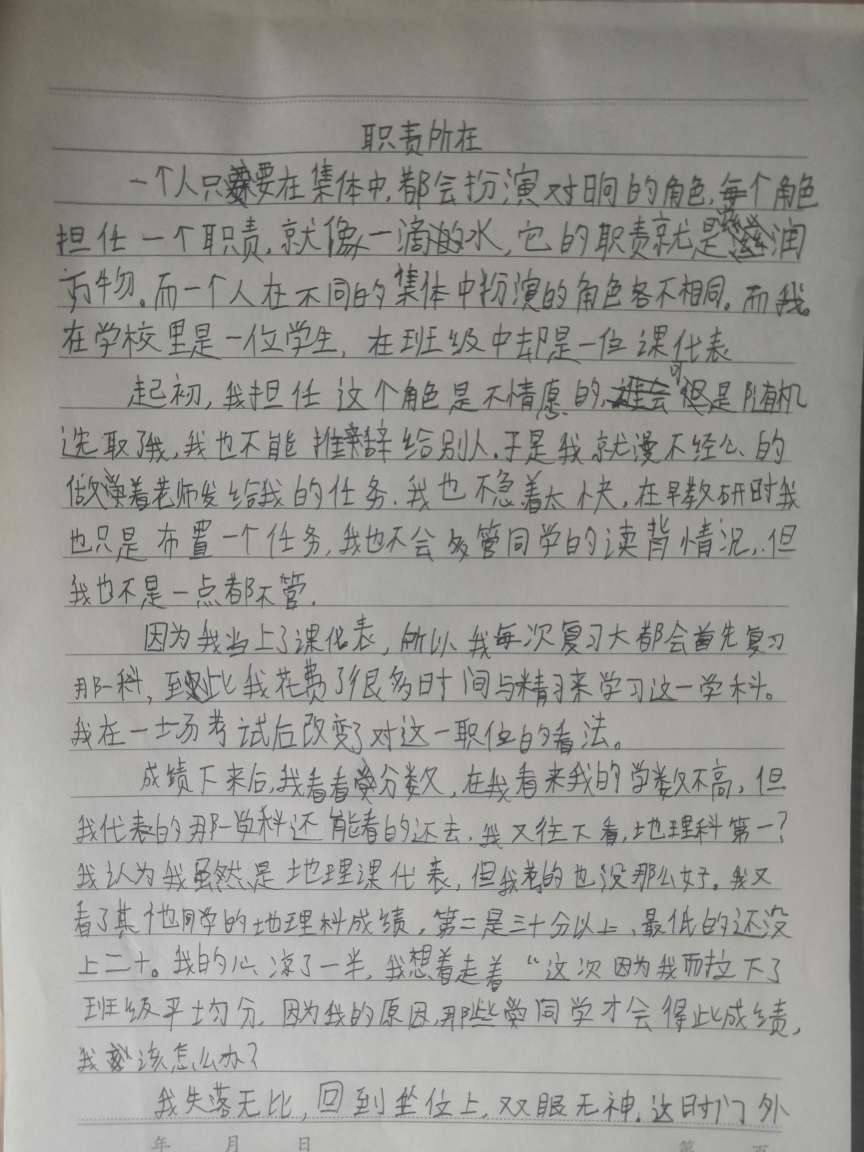 职责所在
一个人只要在集体中,都会扮演对时间的角色,每个角色
担任一个职责,就像一滴的水,它的职责就是滋润
万物。而一个人在不同的集体中扮演的角色各不相同。而我。
在学校里是一位学生,在班级中却是一位课代表
起初,我担任这个角色是不情愿的,可但是随机
选取了我,我也不能推辞给别人.于是我就漫不经心的
做着老师发给我的任务.我也不急着太快,在早教研时我
也只是布置一个任务,我也不会多管同学的读背情况,但
我也不是一点都不管.
因为我当上了课代表,所以我每次复习大都会首先复习
那一科,至此我花费了很多时间与精习来学习这一学科。
我在一场考试后改变了对这一职位的看法。
成绩下来后,我看看分数,在我看来我的学数不高,但
我代表的那一学科还能看的过去.我又往下看,地理科第一?
我认为我虽然是地理课代表,但我考的也没那么好。我又
看了其他同学的地理科成绩,第二是三十分以上,最低的还没
上二十。我的心凉了一半,我想着走着“这次因为我而拉下了
班级平均分,因为我的原因,那些同学才会得此成绩,
我该怎么办?
我失落无比,回到坐位上,双眼无神.这时门外
年 月 日 第 页